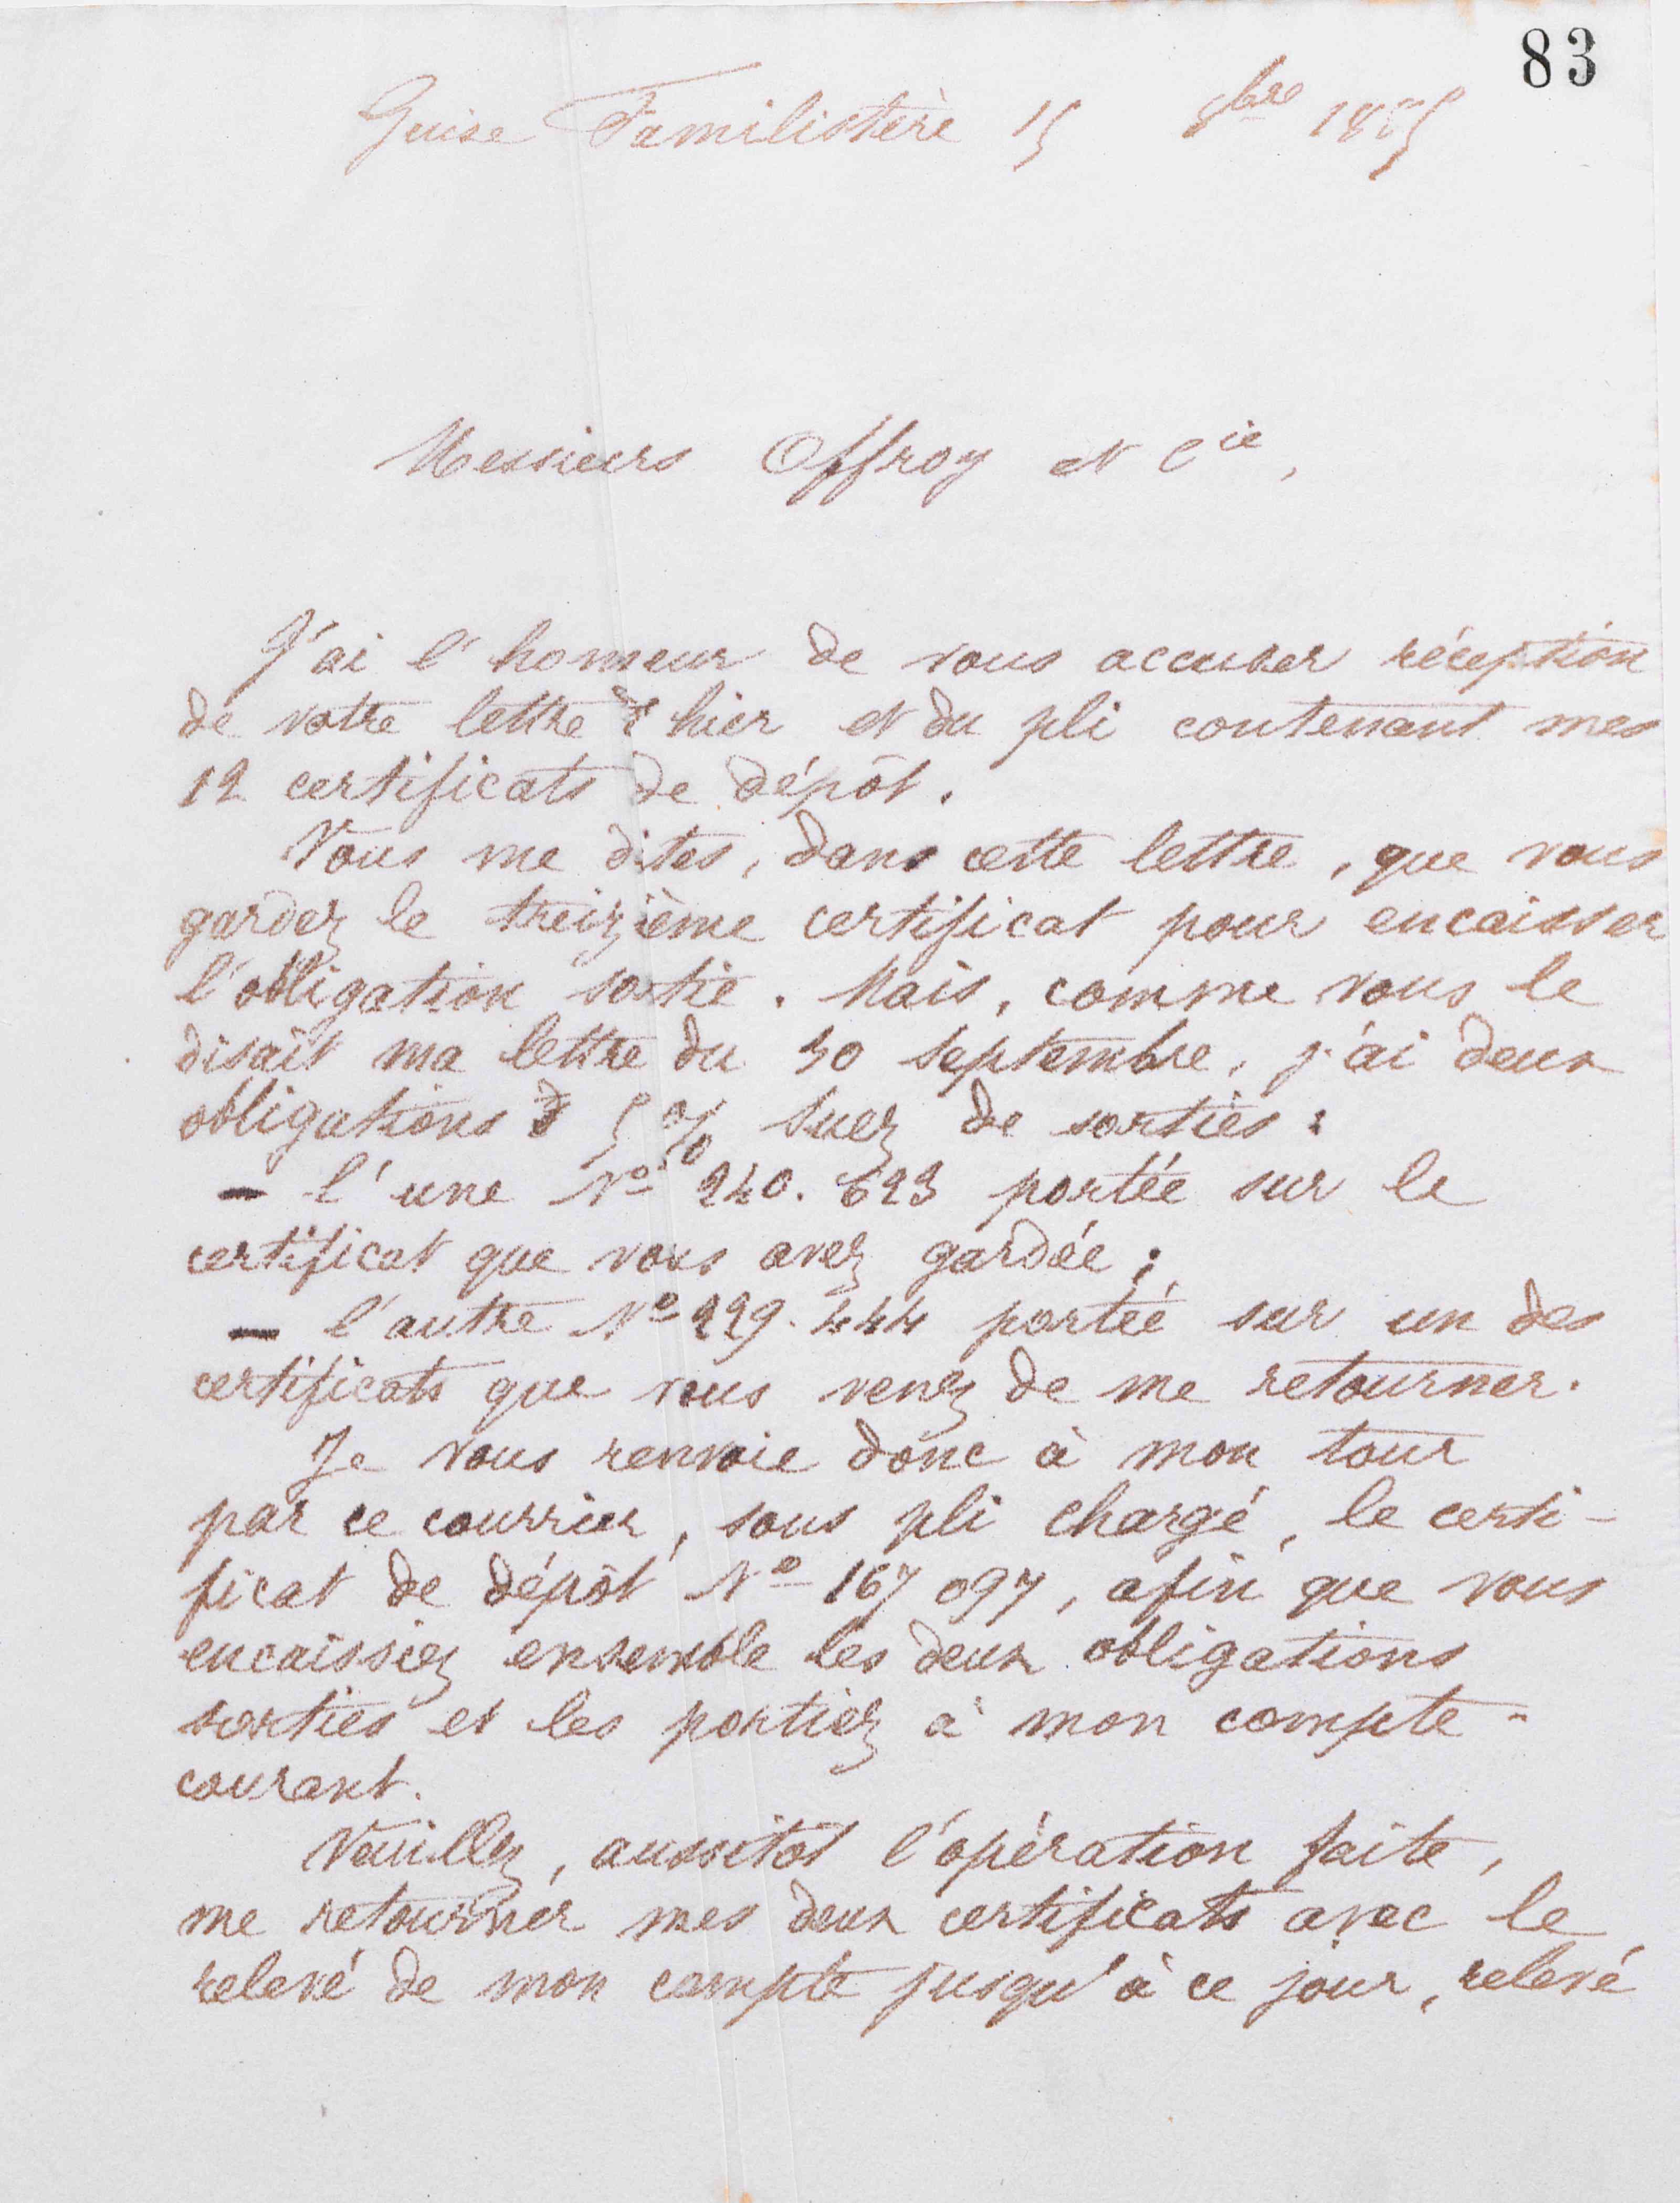 83
Guise Familistère 15 8bre 1885
Messieurs Offroy et Cie,
J'ai l'honneur de vous accuser réception
de votre lettre d'hier et du pli contenant mes
12 certificats de dépôt.
Vous me dites, dans cette lettre, que vous
gardez le treizième certificat pour encaisser
l'obligation sortie. Mais, comme vous le
disait ma lettre du 30 septembre, j'ai deux
obligations d 5 % Suez de sorties :
— l'une No 240.623 portée sur le
certificat que vous avez gardée ;
— l'autre No 229.444 portée sur un des
certificats que vous venez de me retourner.
Je vous renvoie donc à mon tour
par ce courrier, sous pli chargé, le certi-
ficat de dépôt No 167 097, afin que vous
encaissiez ensemble les deux obligations
sorties et les portiez à mon compte-
courant.
Veuillez, aussitôt l'opération faite,
me retourner mes deux certificats avec le
relevé de mon compte jusqu'à ce jour, relevé